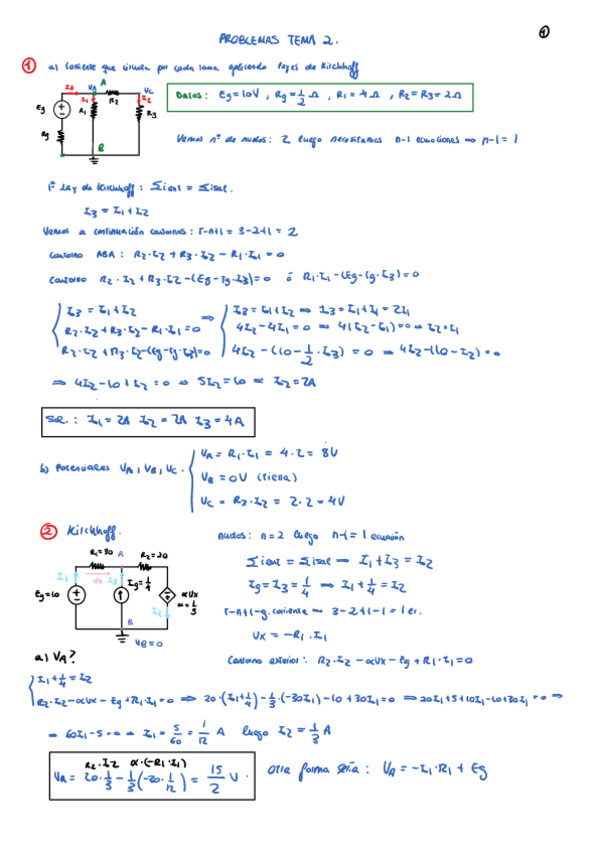 PROBLEMAS TEMA 2.
1
① a) Corriente que circula por cada rama aplicando leyes de Kirchhoff
I3 VA A R2 VC
I1 I2
Eg R1 R3
Rg
B
Datos: Eg=10V, Rg=1/2 Ω, R1=4Ω, R2=R3=2Ω
Vemos nº de nudos: 2 luego necesitamos n-1 ecuaciones ⇒ n-1=1
1ª Ley de Kirchhoff: Σient = Σisal.
I3 = I1+I2
Vemos a continuación contornos: r-n+1 = 3-2+1 = 2
Contorno ABA: R2·I2 + R3·I2 - R1·I1 = 0
Contorno R2·I2 + R3·I2 - (Eg-rg·I3) = 0 ó R1·I1 - (Eg-rg·I3) = 0
I3 = I1+I2 ⇒ I3 = I1+I2 ⇒ I3 = I1+I1 = 2I1
R2·I2 + R3·I2 - R1·I1 = 0 4I2-4I1 = 0 ⇒ 4(I2-I1) = 0 ⇒ I2=I1
R2·I2 + R3·I2-(Eg-rg·I3)=0 4I2-(10-1/2·I3) = 0 ⇒ 4I2-(10-I2) = 0
⇒ 4I2-10+I2 = 0 ⇒ 5I2 = 10 ⇒ I2 = 2A
Sol.: I1 = 2A I2 = 2A I3 = 4A
b) Potenciales VA, VB, VC.
VA = R1·I1 = 4·2 = 8V
VB = 0V (tierra)
VC = R3·I2 = 2·2 = 4V
② Kirchhoff.
R1=30 A R2=20
I1 Vx I3 Ig=1/4 αVx
Eg=10 α=1/3
I2
B
VB=0
nudos: n=2 luego n-1=1 ecuación
Σient = Σisal ⇒ I1+I3 = I2
Ig = I3 = 1/4 ⇒ I1+1/4 = I2
r-n+1-g.corriente ⇒ 3-2+1-1 = 1 ec.
Vx = -R1·I1
Contorno exterior: R2·I2 - αVx - Eg + R1·I1 = 0
a) VA?
I1+1/4 = I2
R2·I2-αVx-Eg+R1·I1 = 0 ⇒ 20·(I1+1/4)-1/3·(-30I1)-10+30I1 = 0 ⇒ 20I1+5+10I1-10+30I1 = 0 ⇒
⇒ 60I1-5 = 0 ⇒ I1 = 5/60 = 1/12 A luego I2 = 1/3 A
R2·I2 α·(-R1·I1)
VA = 20·1/3 - 1/3(-30·1/12) = 15/2 V.
Otra forma sería: VA = -I1·R1 + Eg